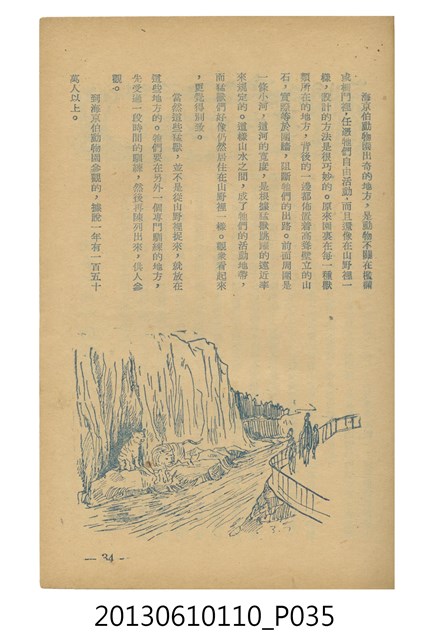 海京伯動物園出奇的地方，是動物不關在檻欄
或柵門裡，任憑牠們自由活動，而且還像在山野裡一
樣，設計的方法是很巧妙的。原來園裏在每一種獸
類所在的地方，背後的一邊都佈置着高聳壁立的山
石，實際等於圍牆，阻斷牠們的出路。前面周圍是
一條小河，這河的寬度，是根據猛獸跳躍的遠近率
來規定的。這樣山水之間，成了牠們的活動地帶，
而猛獸們好像仍然居住在山野裡一樣。觀衆看起來
，更覺得別致。
當然這些猛獸，並不是從山野裡捉來，就放在
這些地方的。牠們要在另外一個專門馴練的地方，
先受過一段時間的馴練，然後再陳列出來，供人參
觀。
到海京伯動物園參觀的，據說一年有一百五十
萬人以上。
— 34 —
20130610110_P035